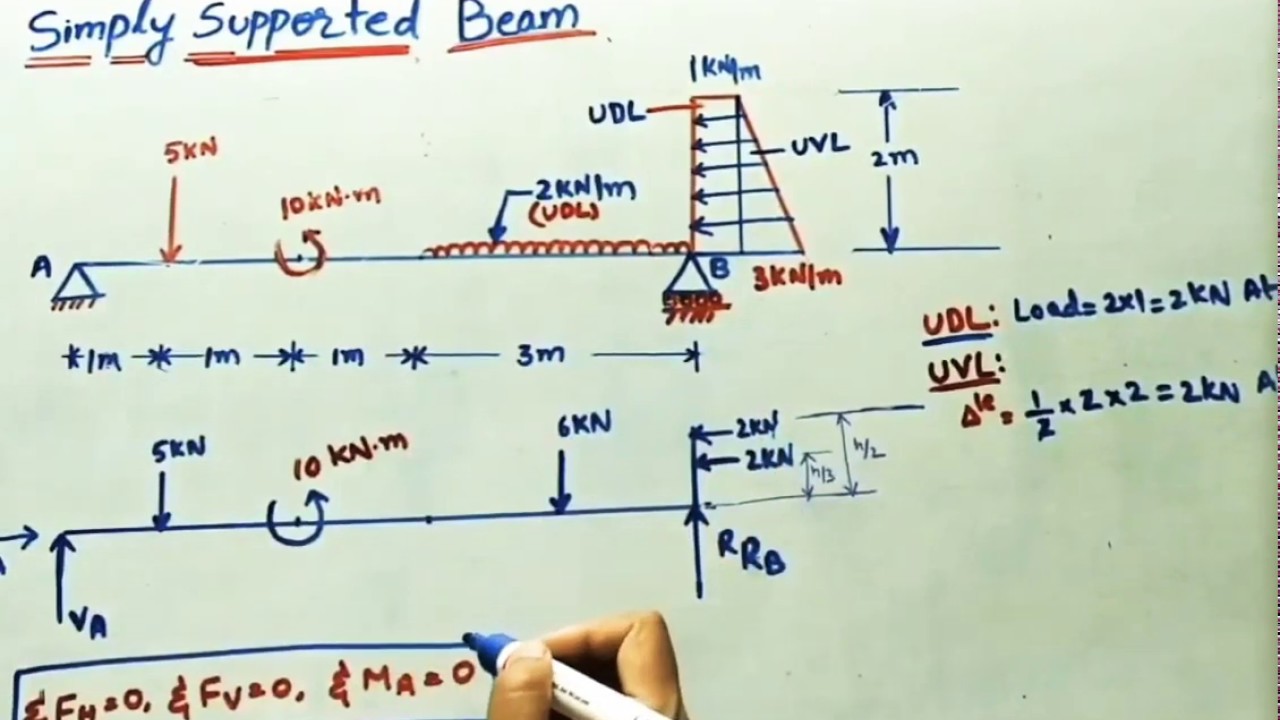 Simply Supported Beam
1 KN/m
UDL
UVL
2m
5KN
10kN·m
2KN/m
(UDL)
A
B
3KN/m
1m 1m 1m 3m
UDL: Load=2x1=2KN At
UVL:
Δle = 1/2 x 2 x 2 = 2KN A
5KN
10 KN·m
6KN
2KN
2KN
h/3
h/2
RRB
VA
ΣFH=0, ΣFV=0, ΣMA=0